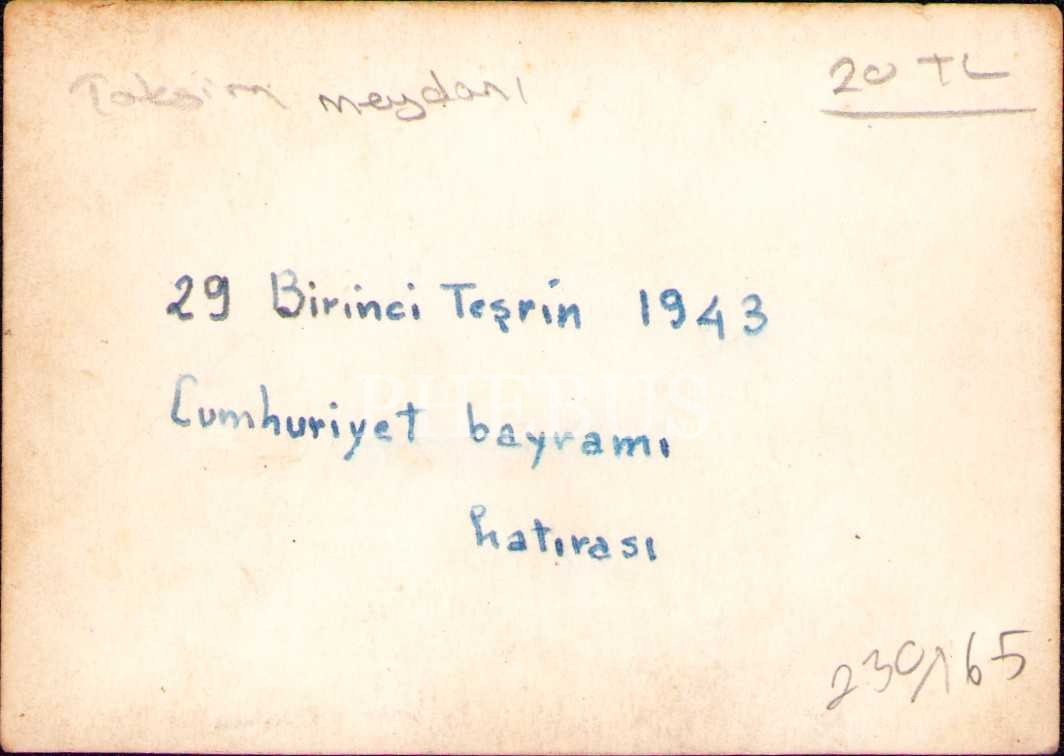 Taksim meydanı
20 TL
29 Birinci Teşrin 1943
Cumhuriyet bayramı
hatırası
PHEBUS
230/165